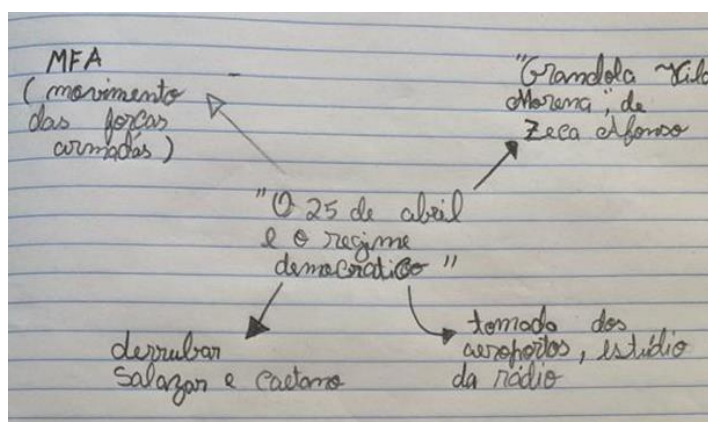 MFA
(movimento
das forças
armadas)
"Grandola Vila
Morena", de
Zeca Afonso
"O 25 de abril
e o regime
democrático"
derrubar
Salazar e Caetano
tomada dos
aeroportos, estúdio
da rádio